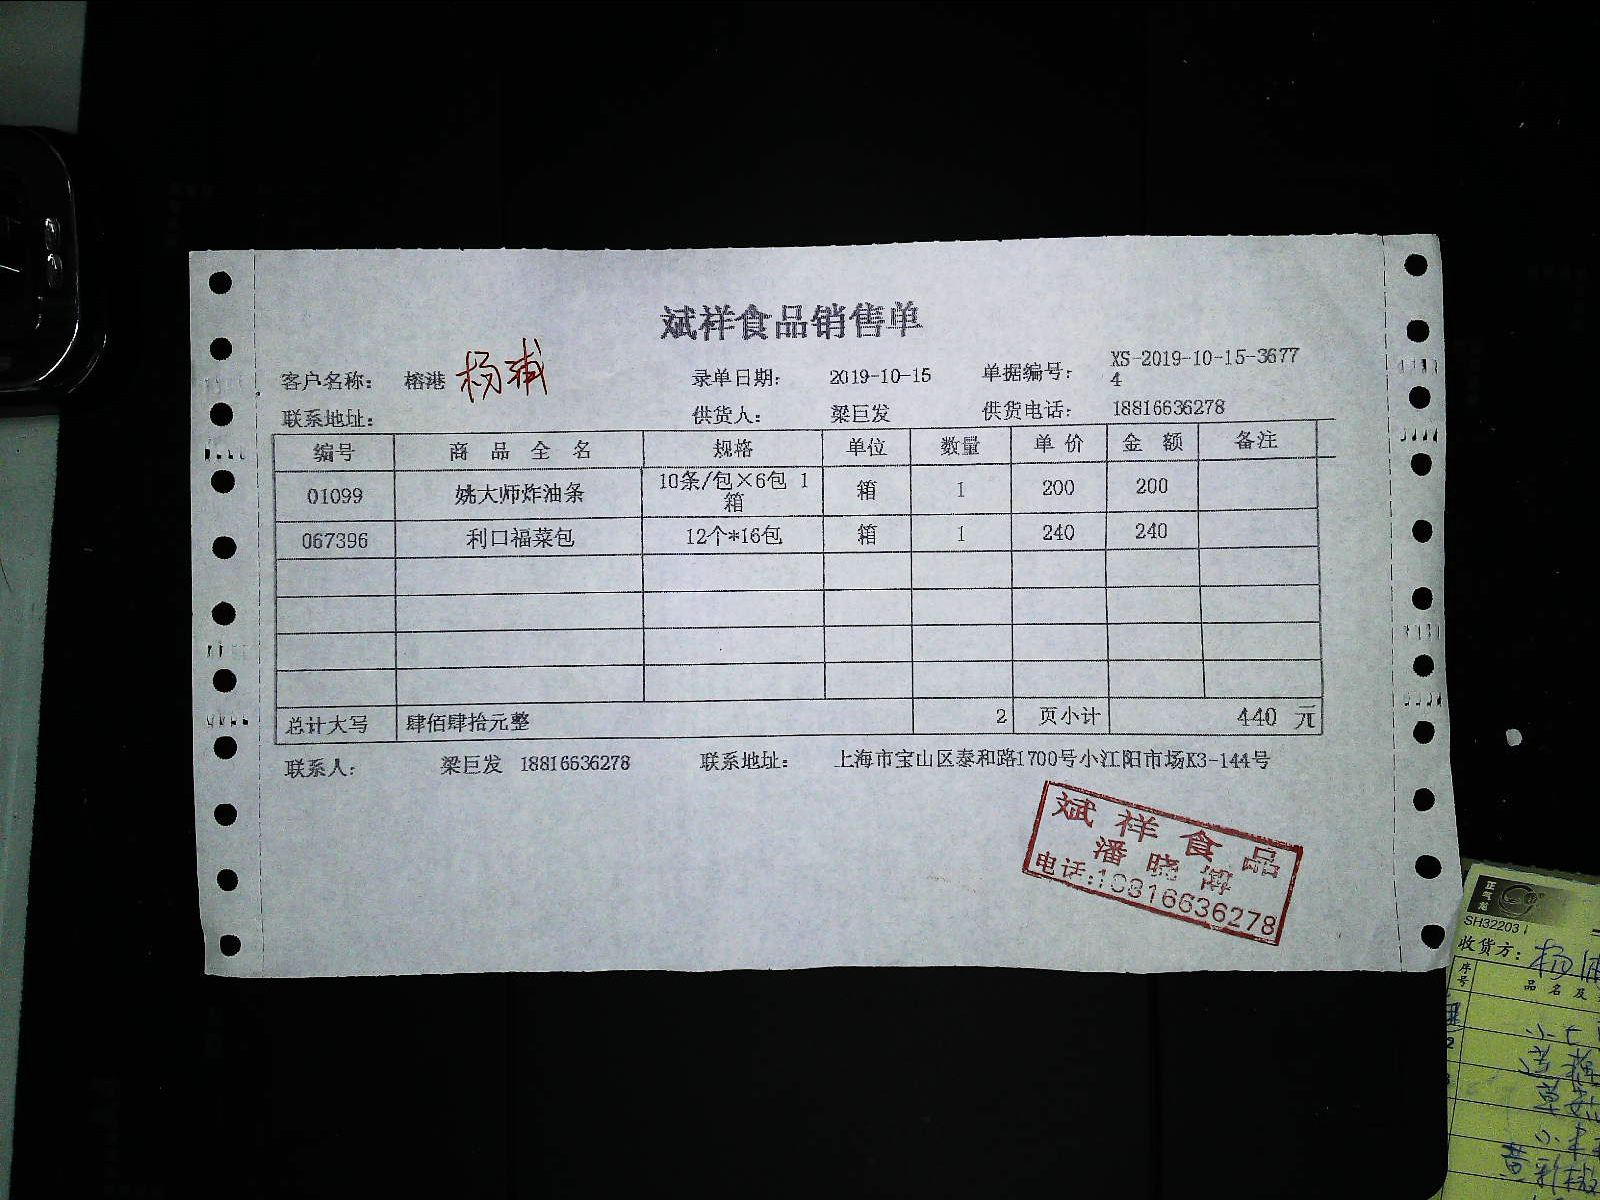 斌祥食品销售单
客户名称： 榕港 杨浦 录单日期： 2019-10-15 单据编号： XS-2019-10-15-3677
4
联系地址： 供货人： 梁巨发 供货电话： 18816636278
编号 商品全名 规格 单位 数量 单价 金额 备注
01099 姚大师炸油条 10条/包×6包 1
箱 箱 1 200 200
067396 利口福菜包 12个*16包 箱 1 240 240
总计大写 肆佰肆拾元整 2 页小计 440 元
联系人： 梁巨发 18816636278 联系地址： 上海市宝山区泰和路1700号小江阳市场K3-144号
斌祥食品
潘晓
电话:18816636278
正气龙
SH32203
收货方：杨浦
序号 品名及